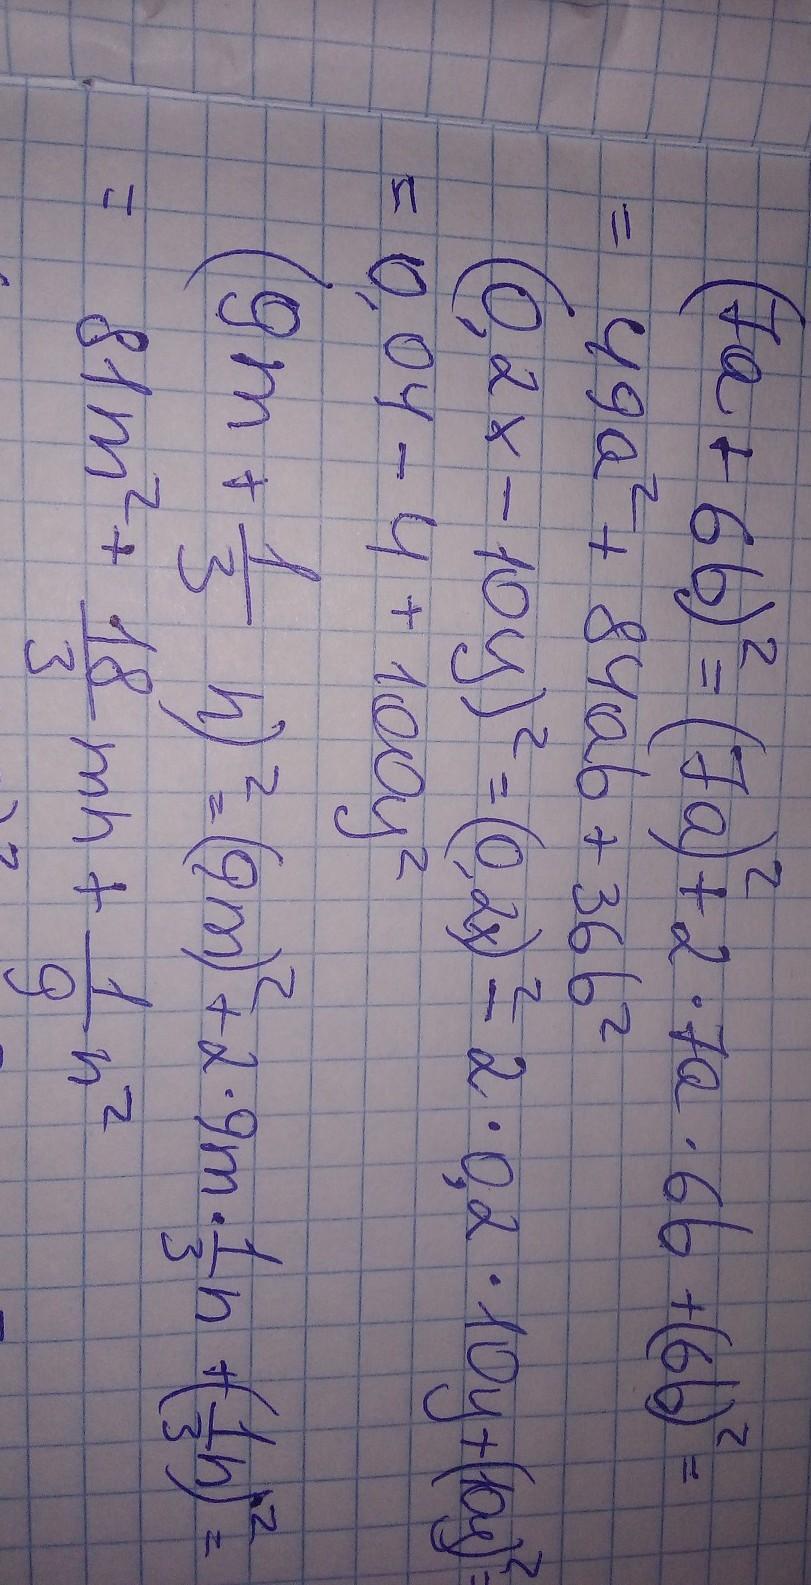 (7a + 6b)² = (7a)² + 2 · 7a · 6b + (6b)² =
= 49a² + 84ab + 36b²
(0,2x - 10y)² = (0,2x)² - 2 · 0,2 · 10y + (10y)² =
= 0,04 - 4 + 100y²
(9m + 1/3 n)² = (9m)² + 2 · 9m · 1/3 n + (1/3 n)² =
= 81m² + 18/3 mn + 1/9 n²